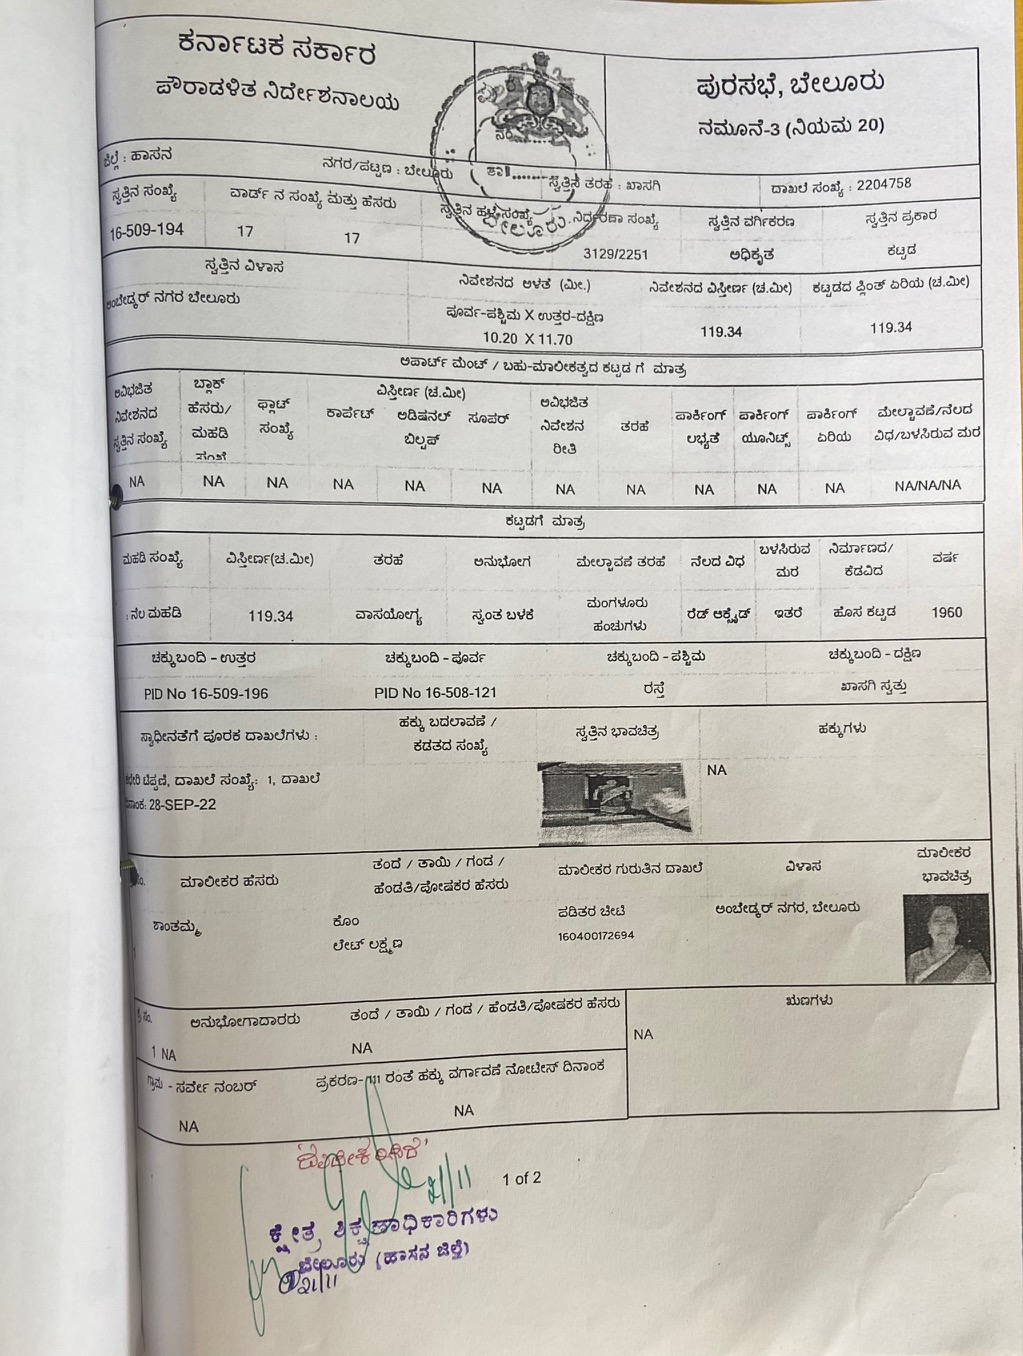 ಕರ್ನಾಟಕ ಸರ್ಕಾರ
ಪೌರಾಡಳಿತ ನಿರ್ದೇಶನಾಲಯ
ಪುರಸಭೆ, ಬೇಲೂರು
ನಮೂನೆ-3 (ನಿಯಮ 20)
ಜಿಲ್ಲೆ : ಹಾಸನ ನಗರ/ಪಟ್ಟಣ : ಬೇಲೂರು ಸ್ವತ್ತಿನ ತರಹೆ : ಖಾಸಗಿ ದಾಖಲೆ ಸಂಖ್ಯೆ : 2204758
ಸ್ವತ್ತಿನ ಸಂಖ್ಯೆ ವಾರ್ಡ್ ನ ಸಂಖ್ಯೆ ಮತ್ತು ಹೆಸರು ಸ್ವತ್ತಿನ ಹಳೆ ಸಂಖ್ಯೆ ನಿರ್ಧರಣಾ ಸಂಖ್ಯೆ ಸ್ವತ್ತಿನ ವರ್ಗಿಕರಣ ಸ್ವತ್ತಿನ ಪ್ರಕಾರ
16-509-194 17 17 3129/2251 ಅಧಿಕೃತ ಕಟ್ಟಡ
ಸ್ವತ್ತಿನ ವಿಳಾಸ ನಿವೇಶನದ ಅಳತೆ (ಮೀ.) ನಿವೇಶನದ ವಿಸ್ತೀರ್ಣ (ಚ.ಮೀ) ಕಟ್ಟಡದ ಪ್ಲಿಂತ್ ಏರಿಯ (ಚ.ಮೀ)
ಅಂಬೇಡ್ಕರ್ ನಗರ ಬೇಲೂರು ಪೂರ್ವ-ಪಶ್ಚಿಮ X ಉತ್ತರ-ದಕ್ಷಿಣ
10.20 X 11.70 119.34 119.34
ಅಪಾರ್ಟ್ ಮೆಂಟ್ / ಬಹು-ಮಾಲೀಕತ್ವದ ಕಟ್ಟಡ ಗೆ ಮಾತ್ರ
ಅವಿಭಜಿತ ನಿವೇಶನದ ಸ್ವತ್ತಿನ ಸಂಖ್ಯೆ
ಬ್ಲಾಕ್ ಹೆಸರು/ ಮಹಡಿ ಸಂಖ್ಯೆ
ಫ್ಲಾಟ್ ಸಂಖ್ಯೆ
ವಿಸ್ತೀರ್ಣ (ಚ.ಮೀ)
ಕಾರ್ಪೆಟ್ ಅಡಿಷನಲ್ ಬಿಲ್ಟಪ್ ಸೂಪರ್
ಅವಿಭಜಿತ ನಿವೇಶನ ರೀತಿ
ತರಹೆ
ಪಾರ್ಕಿಂಗ್ ಲಭ್ಯತೆ
ಪಾರ್ಕಿಂಗ್ ಯೂನಿಟ್ಸ್
ಪಾರ್ಕಿಂಗ್ ಏರಿಯ
ಮೇಲ್ಚಾವಣೆ/ನೆಲದ ವಿಧ/ಬಳಸಿರುವ ಮರ
NA NA NA NA NA NA NA NA NA NA NA NA/NA/NA
ಕಟ್ಟಡಗೆ ಮಾತ್ರ
ಮಹಡಿ ಸಂಖ್ಯೆ ವಿಸ್ತೀರ್ಣ(ಚ.ಮೀ) ತರಹೆ ಅನುಭೋಗ ಮೇಲ್ಚಾವಣೆ ತರಹೆ ನೆಲದ ವಿಧ ಬಳಸಿರುವ ಮರ ನಿರ್ಮಾಣದ/ ಕೆಡವಿದ ವರ್ಷ
: ನೆಲ ಮಹಡಿ 119.34 ವಾಸಯೋಗ್ಯ ಸ್ವಂತ ಬಳಕೆ ಮಂಗಳೂರು ಹಂಚುಗಳು ರೆಡ್ ಆಕ್ಸೈಡ್ ಇತರೆ ಹೊಸ ಕಟ್ಟಡ 1960
ಚಕ್ಕುಬಂದಿ - ಉತ್ತರ ಚಕ್ಕುಬಂದಿ - ಪೂರ್ವ ಚಕ್ಕುಬಂದಿ - ಪಶ್ಚಿಮ ಚಕ್ಕುಬಂದಿ - ದಕ್ಷಿಣ
PID No 16-509-196 PID No 16-508-121 ರಸ್ತೆ ಖಾಸಗಿ ಸ್ವತ್ತು
ಸ್ವಾಧೀನತೆಗೆ ಪೂರಕ ದಾಖಲೆಗಳು : ಹಕ್ಕು ಬದಲಾವಣೆ / ಕಡತದ ಸಂಖ್ಯೆ ಸ್ವತ್ತಿನ ಭಾವಚಿತ್ರ ಹಕ್ಕುಗಳು
ಟಿಪ್ಪಣಿ, ದಾಖಲೆ ಸಂಖ್ಯೆ: 1, ದಾಖಲೆ NA
ದಿನಾಂಕ: 28-SEP-22
ಮಾಲೀಕರ ಹೆಸರು ತಂದೆ / ತಾಯಿ / ಗಂಡ / ಹೆಂಡತಿ/ಪೋಷಕರ ಹೆಸರು ಮಾಲೀಕರ ಗುರುತಿನ ದಾಖಲೆ ವಿಳಾಸ ಮಾಲೀಕರ ಭಾವಚಿತ್ರ
1 ಶಾಂತಮ್ಮ ಕೊಂ ಲೇಟ್ ಲಕ್ಷ್ಮಣ ಪಡಿತರ ಚೀಟಿ 160400172694 ಅಂಬೇಡ್ಕರ್ ನಗರ, ಬೇಲೂರು
ಕ್ರ ಸಂ. ಅನುಭೋಗಾದಾರರು ತಂದೆ / ತಾಯಿ / ಗಂಡ / ಹೆಂಡತಿ/ಪೋಷಕರ ಹೆಸರು ಋಣಗಳು
1 NA NA NA
ಗ್ರಾಮ - ಸರ್ವೇ ನಂಬರ್ ಪ್ರಕರಣ-111 ರಂತೆ ಹಕ್ಕು ವರ್ಗಾವಣೆ ನೋಟೀಸ್ ದಿನಾಂಕ
NA NA
21/11
1 of 2
ಕ್ಷೇತ್ರ ಶಿಕ್ಷಣಾಧಿಕಾರಿಗಳು
ಬೇಲೂರು (ಹಾಸನ ಜಿಲ್ಲೆ)
21/11